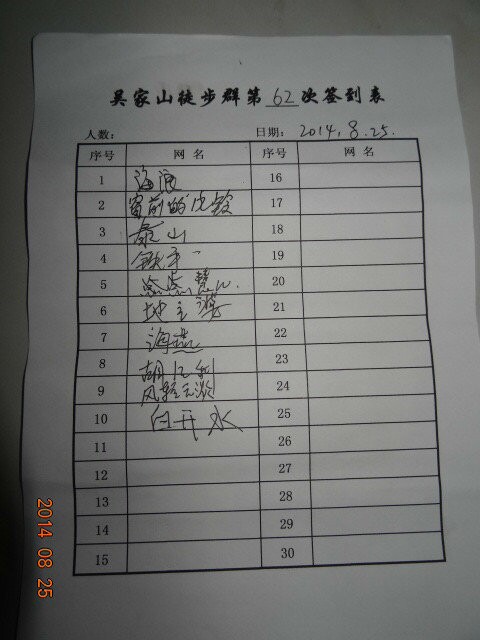 吴家山徒步群第62次签到表
人数: 日期: 2014.8.25.
序号 网名 序号 网名
1 海浪 16
2 窗前的风铃 17
3 泰山 18
4 19
5 点点 20
6 地主 21
7 海燕 22
8 胡 23
9 风轻云淡 24
10 白开水 25
11 26
12 27
13 28
14 29
15 30
2014 08 25